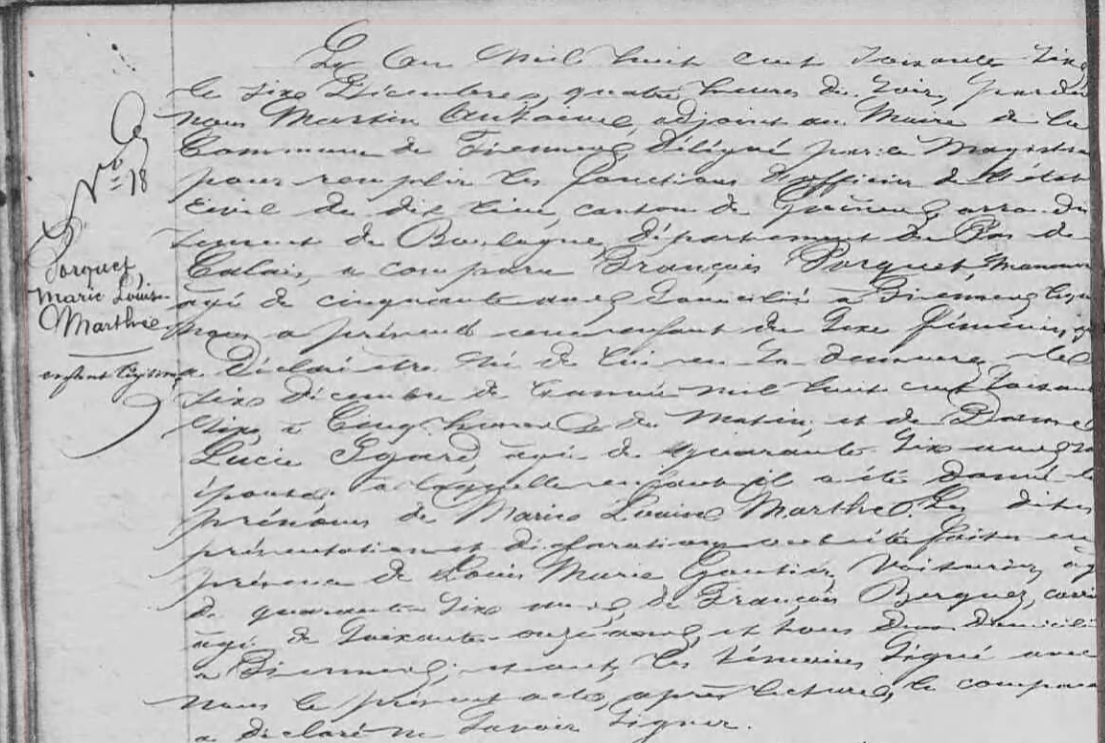 N° 18
Porquet,
Marie Louise
Marthe
enfant légitime
L'an Mil huit cent soixante six,
le six Décembre, quatre heures du soir, pardev
nous Martin Antoine, adjoint au Maire de la
Commune de Fiennes, délégué par ce Magistra
pour remplir les fonctions d'officier de l'état
civil du dit lieu, canton de Guînes, arrondis
sement de Boulogne, département du Pas de
Calais, a comparu François Porquet, Manouv
âgé de cinquante ans, domicilié à Fiennes, lequ
nous a présenté un enfant du sexe féminin, q
a déclaré être né de lui en sa demeure le
six décembre de l'année mil huit cent soixant
six, à Cinq heures du Matin, et de Dame
Lucie Evrard, âgée de quarante six ans, sa
épouse, à laquelle enfant il a été donné le
prénoms de Marie Louise Marthe. Les dites
présentation et déclaration ont été faites en
présence de Louis Marie Gautier, Voiturier, âg
de quarante six ans, de François Berquez,
âgé de soixante-onze ans, et tous deux domicili
à Fiennes; et ont les témoins signé avec
nous le présent acte, après lecture, le compara
a déclaré ne savoir signer.